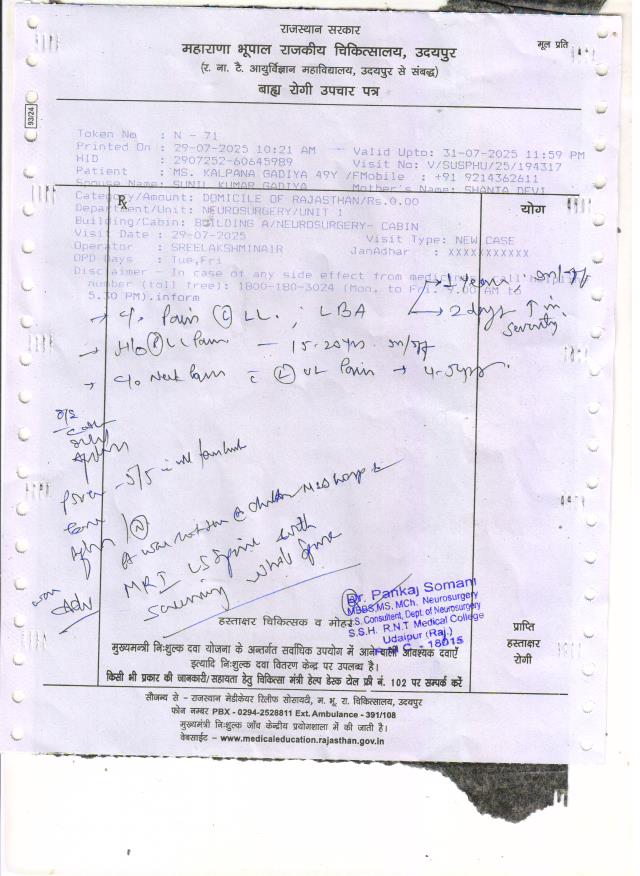 राजस्थान सरकार
महाराणा भूपाल राजकीय चिकित्सालय, उदयपुर
मूल प्रति
(र. ना. टै. आयुर्विज्ञान महाविद्यालय, उदयपुर से संबद्ध)
बाह्य रोगी उपचार पत्र
93/24
Token No : N - 71
Printed On : 29-07-2025 10:21 AM — Valid Upto: 31-07-2025 11:59 PM
HID : 2907252-60645989 Visit No: V/SUSPHU/25/194317
Patient : MS. KALPANA GADIYA 49Y /F Mobile : +91 9214362611
Spouse Name: SUNIL KUMAR GADIYA Mother's Name: SHANTA DEVI
Category/Amount: DOMICILE OF RAJASTHAN/Rs.0.00
योग
Department/Unit: NEUROSURGERY/UNIT 1
Building/Cabin: BUILDING A/NEUROSURGERY- CABIN
Visit Date : 29-07-2025 Visit Type: NEW CASE
Operator : SREELAKSHMINAIR JanAdhar : XXXXXXXXXXX
OPD Days : Tue,Fri
Disclaimer - In case of any side effect from medicines, call helpline
number (toll free): 1800-180-3024 (Mon. to Fri. 9.00 AM to
5.30 PM).inform
→ c/o Pain LL ; LBA → 1 year
→ 2 days ↑ in severity
→ H/o LL Pain — 15-20 yrs
→ c/o Neck Pain c̄ (L) UL Pain → 4-5 yrs
Power - 5/5 in all four limb
(N)
Adv
MRI LS Spine with
Screening whole Spine
Dr. Pankaj Somani
MBBS, MS, MCh. Neurosurgery
S. Consultent, Dept. of Neurosurgery
S.S.H. R.N.T Medical College
Udaipur (Raj.)
- 18015
हस्ताक्षर चिकित्सक व मोहर
प्राप्ति
हस्ताक्षर
रोगी
मुख्यमन्त्री निःशुल्क दवा योजना के अन्तर्गत सर्वाधिक उपयोग में आने वाली आवश्यक दवाएँ
इत्यादि निःशुल्क दवा वितरण केन्द्र पर उपलब्ध है।
किसी भी प्रकार की जानकारी/सहायता हेतु चिकित्सा मंत्री हेल्प डेस्क टोल फ्री नं. 102 पर सम्पर्क करें
सौजन्य से - राजस्थान मेडीकेयर रिलीफ सोसायटी, म. भू. रा. चिकित्सालय, उदयपुर
फोन नम्बर PBX - 0294-2528811 Ext. Ambulance - 391/108
मुख्यमंत्री निःशुल्क जाँच केन्द्रीय प्रयोगशाला में की जाती है।
वेबसाईट - www.medicaleducation.rajasthan.gov.in